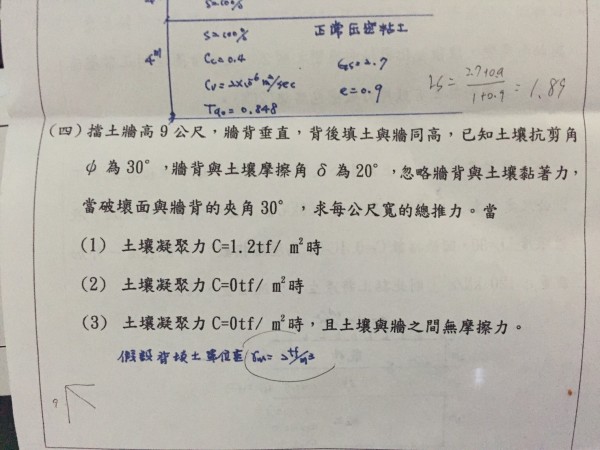 S=100%
S=100% 正常壓密粘土
4m Cc=0.4 Gs=2.7
Cv=2×10⁻⁶ m²/sec e=0.9
T90=0.848
2.7+0.9
1+0.9
= 1.89
(四) 擋土牆高9公尺,牆背垂直,背後填土與牆同高,已知土壤抗剪角
ψ 為30°,牆背與土壤摩擦角 δ 為20°,忽略牆背與土壤黏著力,
當破壞面與牆背的夾角30°,求每公尺寬的總推力。當
(1) 土壤凝聚力 C=1.2tf/ m²時
(2) 土壤凝聚力 C=0tf/ m²時
(3) 土壤凝聚力 C=0tf/ m²時,且土壤與牆之間無摩擦力。
假設背填土單位重 γm= 2 tf/m3
9